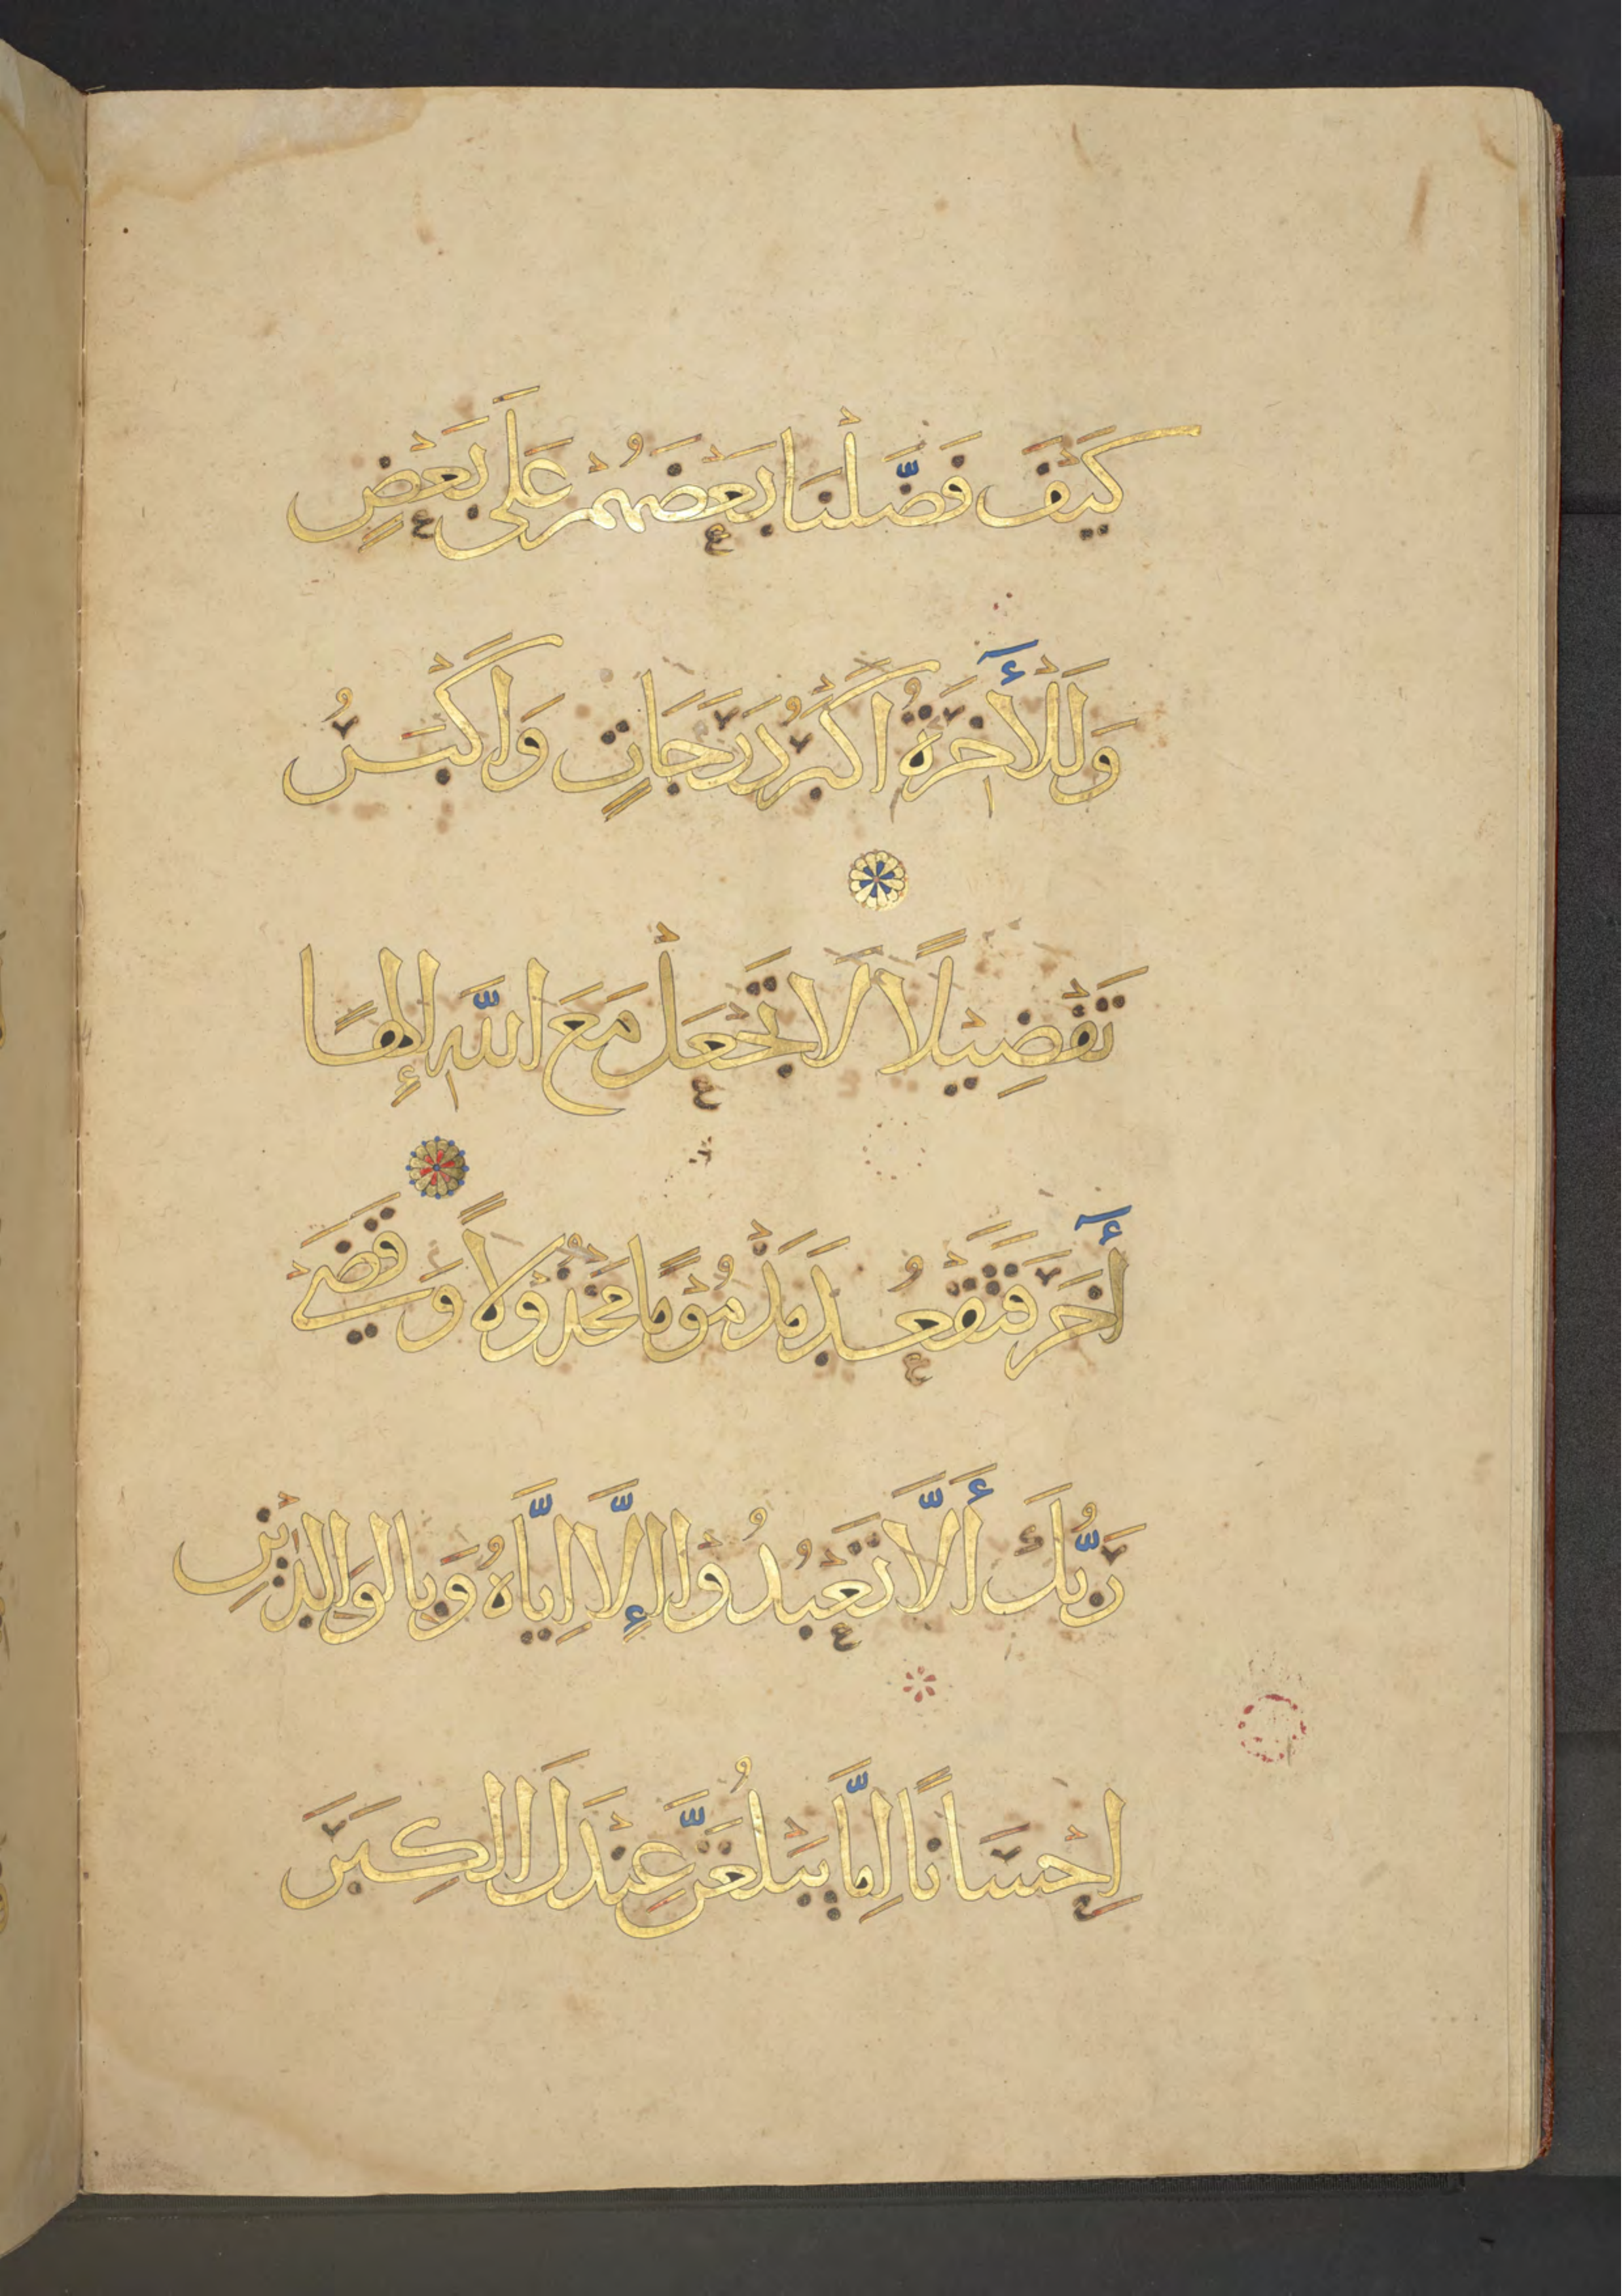 كَيْفَ فَضَّلْنَا بَعْضَهُمْ عَلَى بَعْضٍ
وَلَلْأَخِرَةُ اَكْبَرُ دَرَجَاتٍ وَاَكْبَرُ
تَفْضِيْلًا لَا تَجْعَلْ مَعَ اللَّهِ اِلٰهًا
أَخَرَ فَتَقْعُدَ مَذْمُوْمًا مَخْذُوْلًا وَقَضَىْ
رَبُّكَ أَلَّا تَعْبُدُوْا إِلَّا اِيَّاهُ وَبِالْوَالِدَيْنِ
اِحْسَانًا اِمَّا يَبْلُغَنَّ عِنْدَكَ الْكِبَرَ